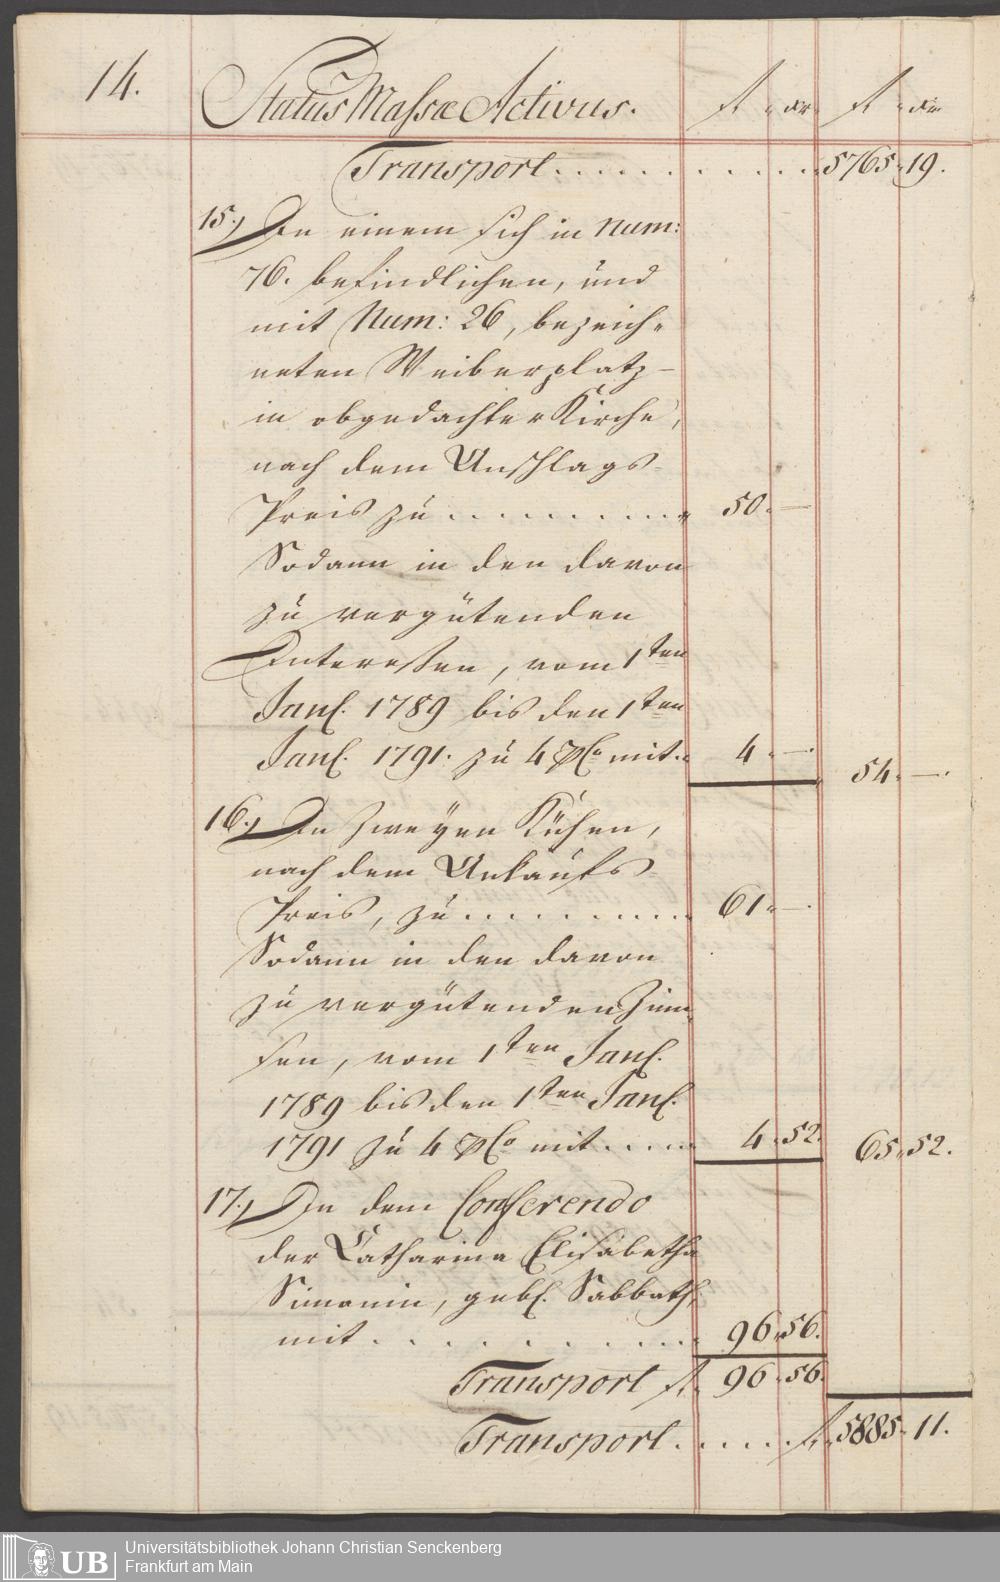 14.
Status Massæ Activus. fl xr fl xr
Transport . . . . . . . . . . . 5765 " 19.
15.) In einem sich in Num:
76. befindlichen, und
mit Num: 26, bezeich-
neten Weiberplatz
in obgedachter Kirche,
nach dem Anschlags-
Preis zu . . . . . . . . . . " 50. —
Sodann in den davon
zu vergütenden
Interessen, vom 1ten
Jan. 1789 bis den 1ten
Jan. 1791. zu 4 pCo mit . " 4 " —. 54 " —.
16.) In zweyen Kühen,
nach dem Ankaufs-
Preis, zu . . . . . . . . . 61 " —.
Sodann in den davon
zu vergütenden Zinn-
sen, vom 1ten Jan.
1789 bis den 1ten Jan.
1791 zu 4 pCo mit . . . . " 4 " 52. 65 " 52.
17.) In dem Conferendo
der Catharina Elisabetha
Simonin, geb. Sabbath,
mit . . . . . . . . . . . 96 " 56.
Transport fl. 96 " 56.
Transport . . . . . . fl. 5885 " 11.
UB
Universitätsbibliothek Johann Christian Senckenberg
Frankfurt am Main